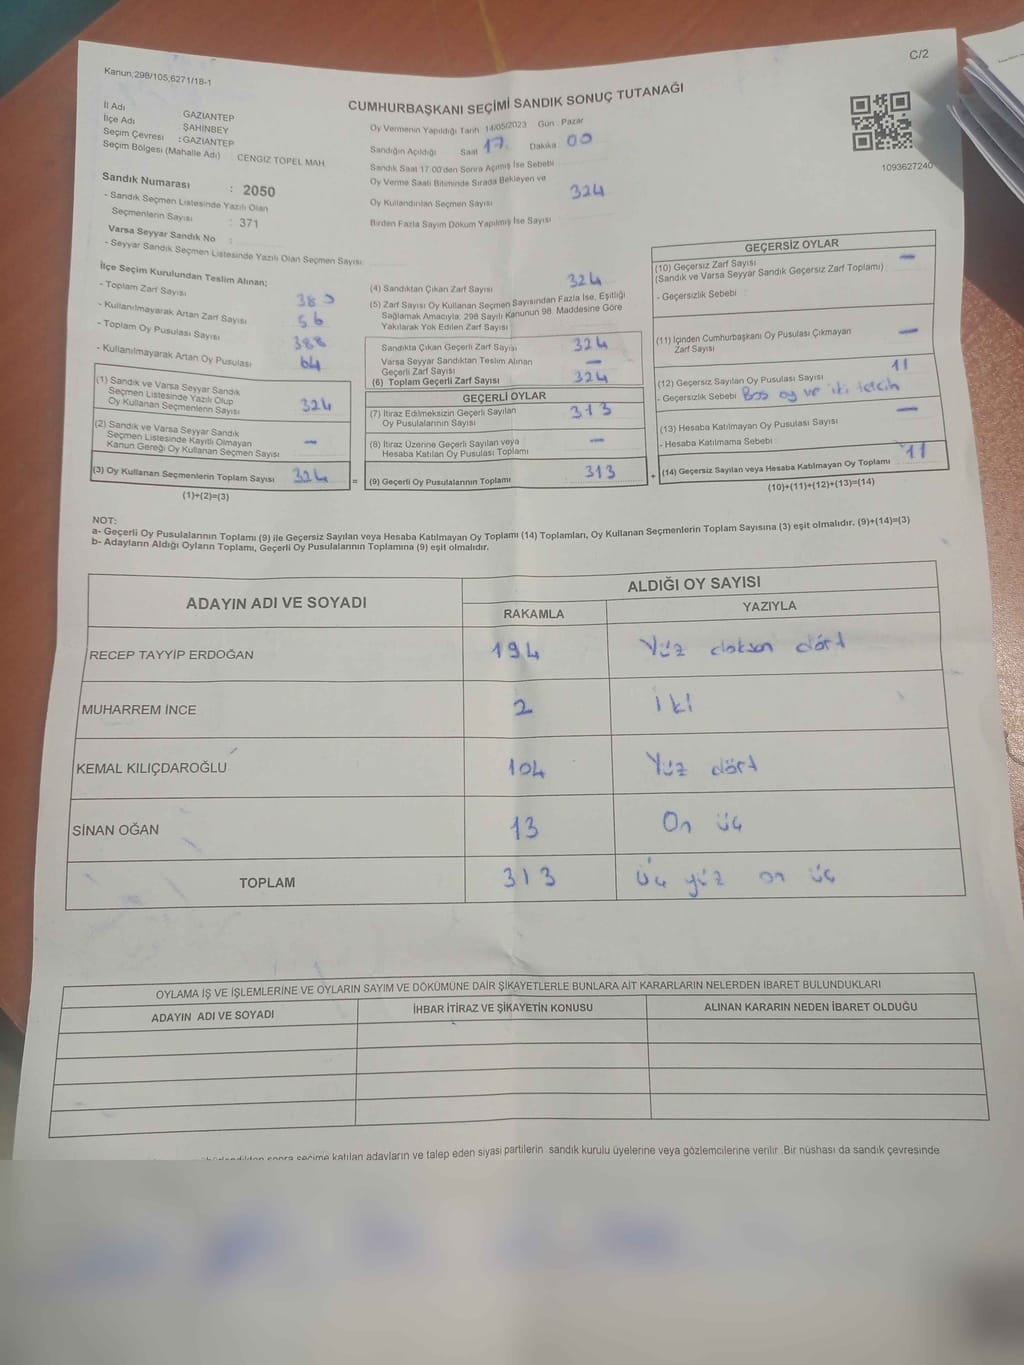 C/2
Kanun;298/105,6271/18-1
CUMHURBAŞKANI SEÇİMİ SANDIK SONUÇ TUTANAĞI
İl Adı : GAZİANTEP
İlçe Adı : ŞAHİNBEY
Seçim Çevresi : GAZİANTEP
Seçim Bölgesi (Mahalle Adı) : CENGİZ TOPEL MAH.
Sandık Numarası : 2050
- Sandık Seçmen Listesinde Yazılı Olan
Seçmenlerin Sayısı : 371
Varsa Seyyar Sandık No :
- Seyyar Sandık Seçmen Listesinde Yazılı Olan Seçmen Sayısı:
Oy Vermenin Yapıldığı Tarih 14/05/2023 Gün : Pazar
Sandığın Açıldığı Saat 17. Dakika 00
Sandık Saat 17:00'den Sonra Açılmış İse Sebebi
Oy Verme Saati Bitiminde Sırada Bekleyen ve
Oy Kullandırılan Seçmen Sayısı 324
Birden Fazla Sayım Döküm Yapılmış İse Sayısı
1093627240
İlçe Seçim Kurulundan Teslim Alınan;
- Toplam Zarf Sayısı 380
- Kullanılmayarak Artan Zarf Sayısı 56
- Toplam Oy Pusulası Sayısı 388
- Kullanılmayarak Artan Oy Pusulası 64
(1) Sandık ve Varsa Seyyar Sandık
Seçmen Listesinde Yazılı Olup
Oy Kullanan Seçmenlerin Sayısı 324
(2) Sandık ve Varsa Seyyar Sandık
Seçmen Listesinde Kayıtlı Olmayan
Kanun Gereği Oy Kullanan Seçmen Sayısı -
(3) Oy Kullanan Seçmenlerin Toplam Sayısı 324
(1)+(2)=(3)
=
(4) Sandıktan Çıkan Zarf Sayısı 324
(5) Zarf Sayısı Oy Kullanan Seçmen Sayısından Fazla İse, Eşitliği
Sağlamak Amacıyla; 298 Sayılı Kanunun 98. Maddesine Göre
Yakılarak Yok Edilen Zarf Sayısı
Sandıkta Çıkan Geçerli Zarf Sayısı 324
Varsa Seyyar Sandıktan Teslim Alınan
Geçerli Zarf Sayısı -
(6) Toplam Geçerli Zarf Sayısı 324
GEÇERLİ OYLAR
(7) İtiraz Edilmeksizin Geçerli Sayılan
Oy Pusulalarının Sayısı 313
(8) İtiraz Üzerine Geçerli Sayılan veya
Hesaba Katılan Oy Pusulaları Toplamı -
(9) Geçerli Oy Pusulalarının Toplamı 313
+
GEÇERSİZ OYLAR
(10) Geçersiz Zarf Sayısı -
(Sandık ve Varsa Seyyar Sandık Geçersiz Zarf Toplamı)
- Geçersizlik Sebebi
(11) İçinden Cumhurbaşkanı Oy Pusulası Çıkmayan
Zarf Sayısı -
(12) Geçersiz Sayılan Oy Pusulası Sayısı 11
- Geçersizlik Sebebi Boş oy ve iki tercih
(13) Hesaba Katılmayan Oy Pusulası Sayısı -
- Hesaba Katılmama Sebebi
(14) Geçersiz Sayılan veya Hesaba Katılmayan Oy Toplamı 11
(10)+(11)+(12)+(13)=(14)
NOT:
a- Geçerli Oy Pusulalarının Toplamı (9) ile Geçersiz Sayılan veya Hesaba Katılmayan Oy Toplamı (14) Toplamları, Oy Kullanan Seçmenlerin Toplam Sayısına (3) eşit olmalıdır. (9)+(14)=(3)
b- Adayların Aldığı Oyların Toplamı, Geçerli Oy Pusulalarının Toplamına (9) eşit olmalıdır.
ADAYIN ADI VE SOYADI
ALDIĞI OY SAYISI
RAKAMLA YAZIYLA
RECEP TAYYİP ERDOĞAN 194 Yüz doksan dört
MUHARREM İNCE 2 iki
KEMAL KILIÇDAROĞLU 104 Yüz dört
SİNAN OĞAN 13 On üç
TOPLAM 313 üç yüz on üç
OYLAMA İŞ VE İŞLEMLERİNE VE OYLARIN SAYIM VE DÖKÜMÜNE DAİR ŞİKAYETLERLE BUNLARA AİT KARARLARIN NELERDEN İBARET BULUNDUKLARI
ADAYIN ADI VE SOYADI İHBAR İTİRAZ VE ŞİKAYETİN KONUSU ALINAN KARARIN NEDEN İBARET OLDUĞU
sonra seçime katılan adayların ve talep eden siyasi partilerin sandık kurulu üyelerine veya gözlemcilerine verilir. Bir nüshası da sandık çevresinde